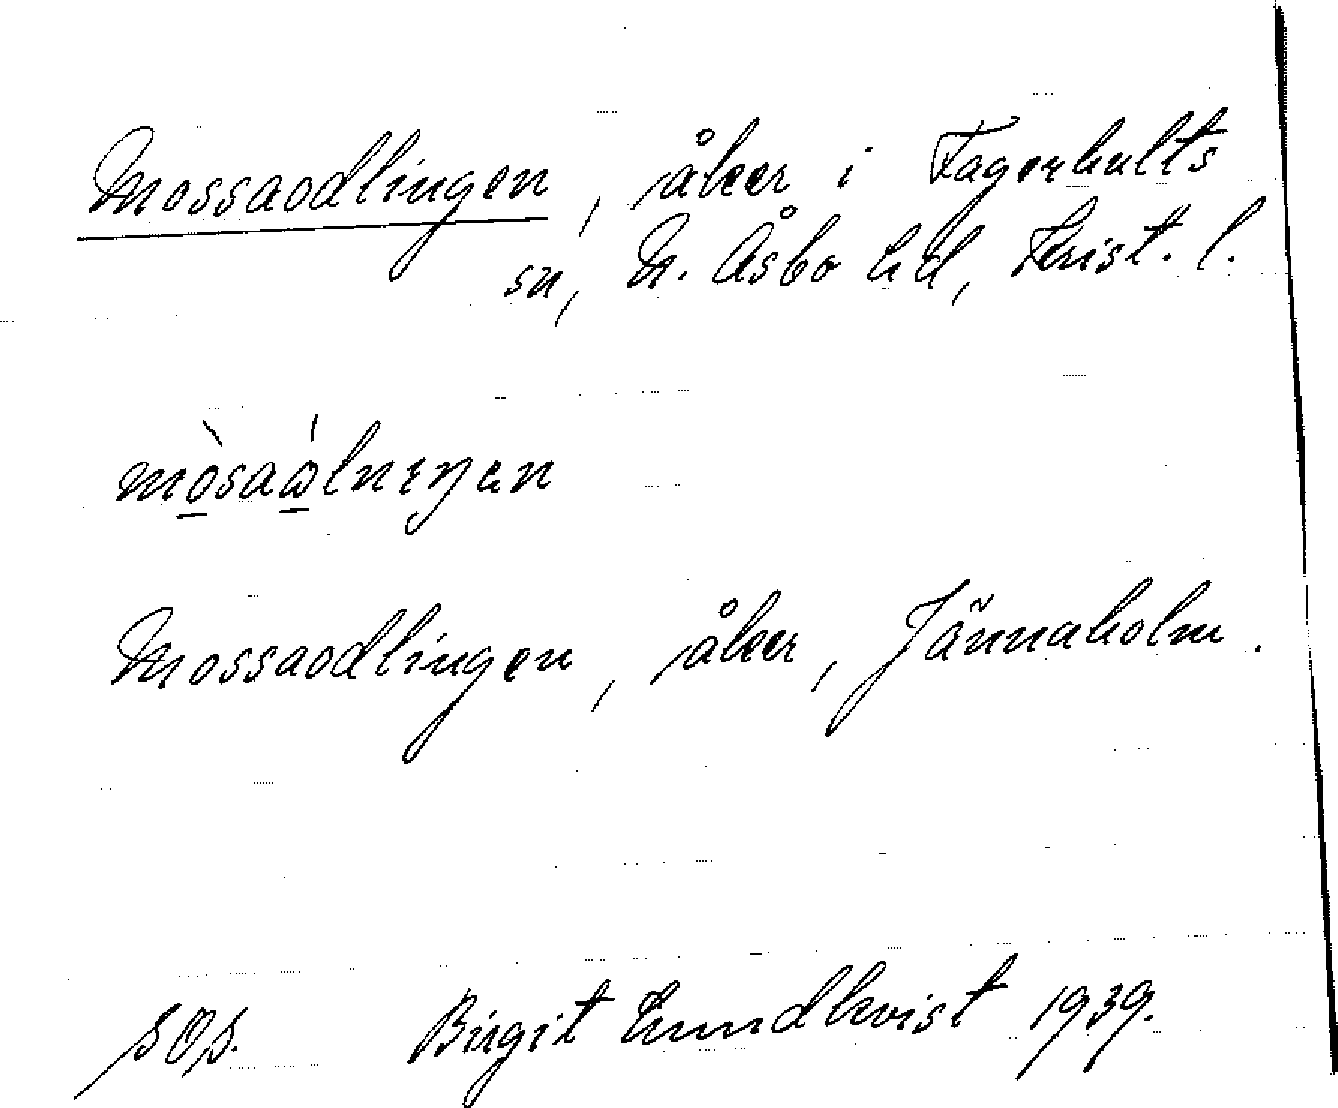 Mossaodlingen, åker i Fagerhults
sn, N. Åsbo hd, Krist. l.
Mossaodlingen, åker, Jännaholm.
sOs. Birgit Lundkvist 1939.